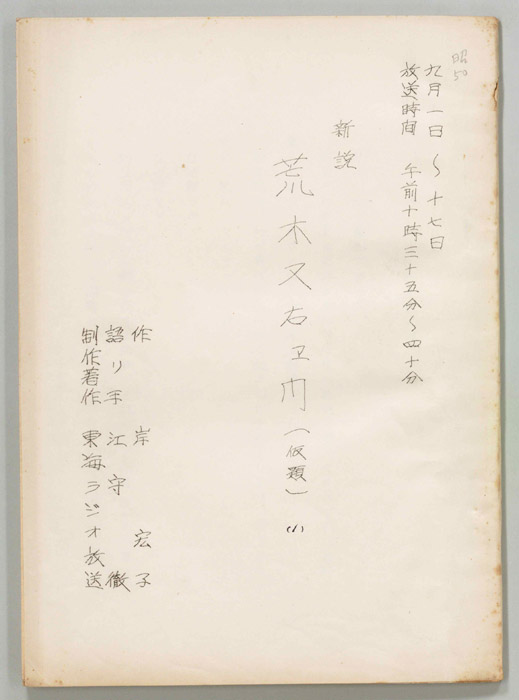 昭
50
九月一日〜十七日
放送時間 午前十時三十五分〜四十分
新説
荒木又右ヱ門(仮題)
(1)
作 岸 宏子
語り手 江守 徹
制作著作 東海ラジオ放送